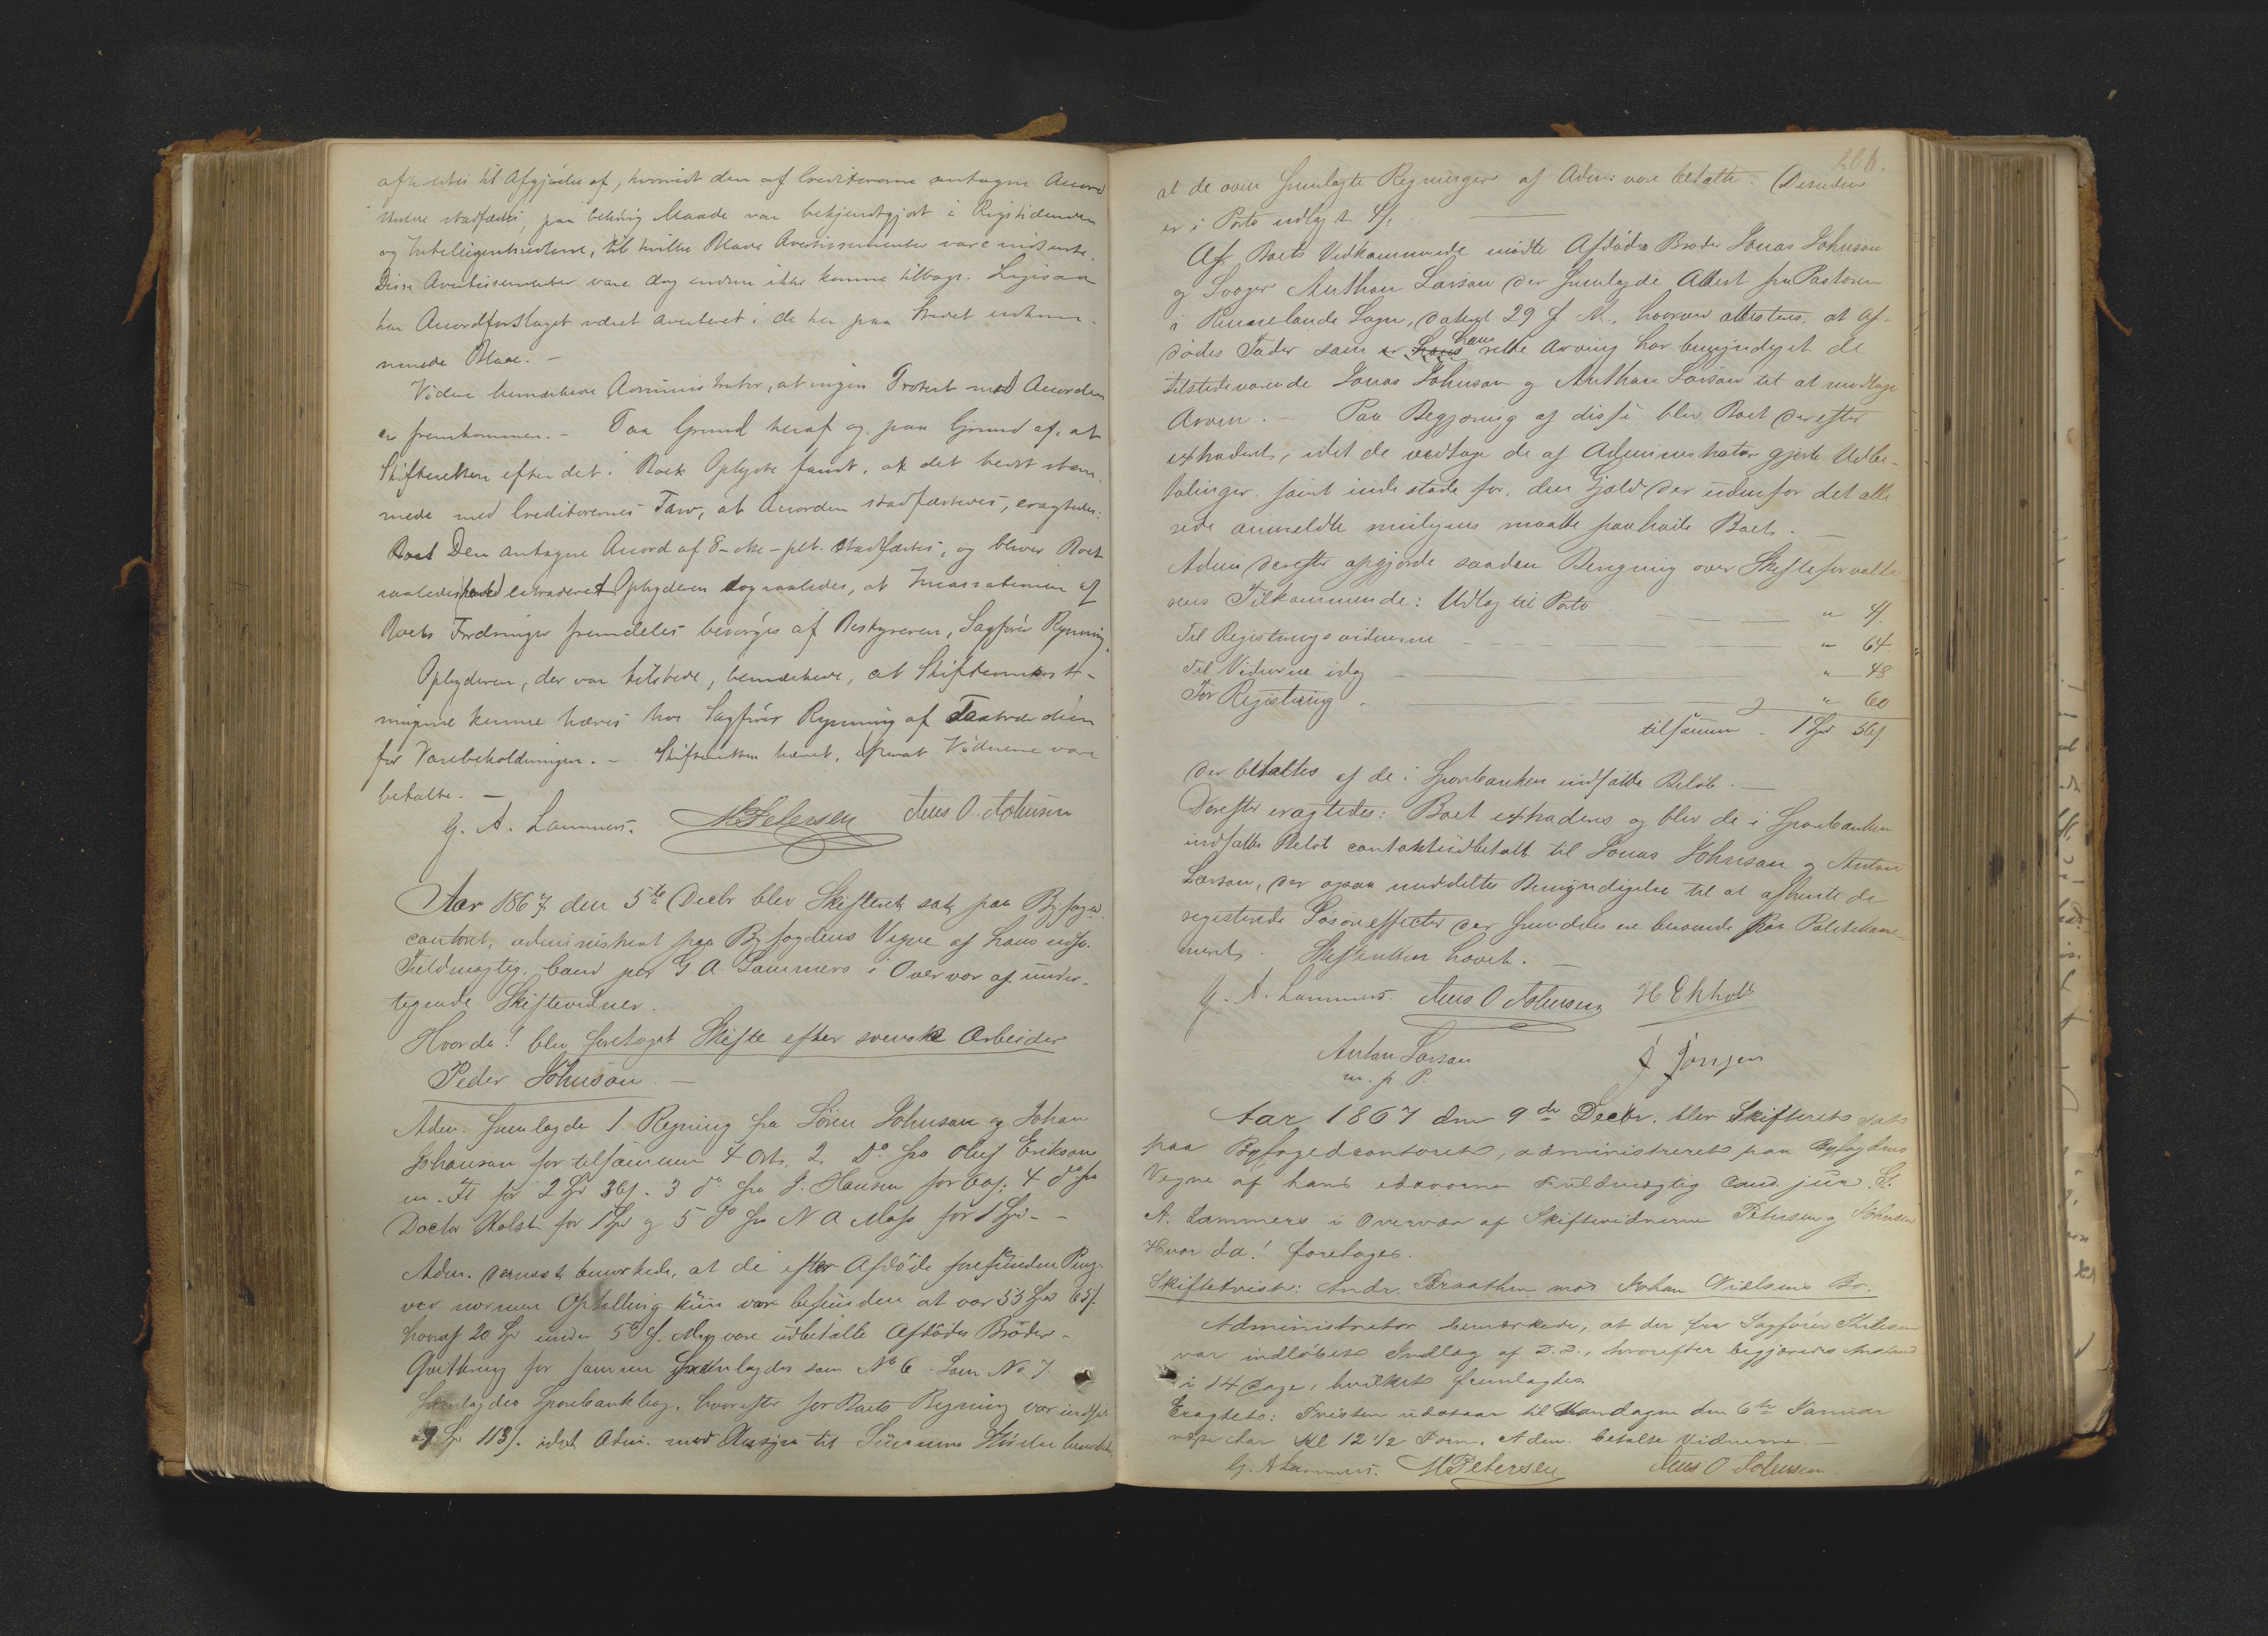 afholdtes til Afgjørelse af, hvorvidt den af Creditorerne antagne Accord
skulde stadfæstes, paa belovlig Maade var bekjendtgjort i Rigstidenden
og Intelligentssedlerne, til hvilke Blade Avertissementer vare indsendte.
Disse Avertissementer vare dog endnu ikke komne tilbage. Ligesaa
har Accordforslaget været averteret i de her paa Stedet udkom-
mende Blade. –
Videre bemærkede Administrator, at ingen Protest mod Accorden
er fremkommen. – Paa Grund heraf og paa Grund af, at
Skifteretten efter det i Boet Oplyste fandt, at det bedst stem-
mede med Creditorernes Tarv, at Accorden stadfæstedes, eragtedes:
Den antagne Accord af 8 – otte – pCt. stadfæstes, og bliver Boet
saaledes extraderet Opbyderen dog saaledes, at Incassationen af
Boets Fordringer fremdeles besørges af Bestyreren, Sagfører Rynning.
Opbyderen, der var tilstede, bemærkede, at Skifteomkost-
ningerne kunne hæves hos Sagfører Rynning af
for Varebeholdningen. – Skifteretten hævet, efterat Vidnerne vare
betalte. –
G. A. Lammers. M Petersen Jens O. Johnsen
Aar 1867 den 5te Decbr blev Skifteret sat paa Byfoged-
contoret, administreret paa Byfogdens Vegne af hans edsv.
Fuldmægtig, cand. jur G A Lammers i Overvær af under-
tegnede Skiftevidner.
Hvor da! blev foretaget Skifte efter svenske Arbeider
Peder Johnson. –
Adm. fremlagde 1 Regning fra Sören Johnson og Johan
Johanson for tilsammen 4 Ort, 2. Do fra Oluf Erikson
m. Fl for 2 Spd 36 s. 3 do fra J. Hansen for 60 s: 4 do fra
Doctor Holst for 1 Spd og 5 do fra N A Moss for 1 Spd. –
Adm. dernæst bemærkede, at de efter Afdöde forefundne Penge
ved nærmere Optælling kun var befunden at vær 53 Spd 65 s.
hvoraf 20 Spd under 5 d. M. vare udbetalte Afdödes Broder.
Qvittering for samme fremlagdes som No 6. Som No 7.
fremlagdes Sparebankbog, hvorefter for Boets Regning var indsat
29 Sp 113 s. idet Adm. med Hensyn til Summens Störrelse bemærkede
266.
at de oven fremlagte Regninger af Adm: vare betalte. Desuden
er i Porto udlagt 4 s.
Af Boets Vedkommende mødte Afdödes Broder Jonas Johnson
og Svoger Anthon Larson der fremlagde Attest fra Pastoren
i Sogn, dateret 29 f. M., hvorved attesteres, at Af-
dödes Fader som er hans hans rette Arving har bemyndiget de
tilstedeværende Jonas Johnson og Anthon Larson til at modtage
Arven. – Paa Begjæring af disse blev Boet derefter
extraderet, idet de vedtoge de af Administrator gjorte Udbe-
talinger samt inde stode for den Gjæld der udenfor det alle-
rede anmeldte muligens maatte paahvile Boet. –
Adm derefter opgjorde saadan Beregning over Skifteforvalte-
rens Tilkommende: Udlæg til Porto " 4 s.
Til Registreringsvidnerne " 64
Til Vidnerne idag " 48
For Registrering " 60
tilsammen – 1 Spd 56 s.
der betaltes af de i Sparebanken indsatte Beløb. –
Derefter eragtedes: Boet extraderes og blev de i Sparebanken
indsatte Beløb contant udbetalt til Jonas Johnson og Anton
Larson, der ogsaa meddeltes Bemyndigelse til at afhente de
registrerede Løsøreeffecter der fremdeles ere beroende paa Politikam-
meret. Skifteretten hævet. –
G. A. Lammers. Jens O Johnsen H Ekholt
Anton Larson
m. p P.
J Jonson
Aar 1867 den 9de Decbr. blev Skifteret sat
paa Byfogedcontoret, administreret paa Byfogdens
Vegne af hans edsvorne Fuldmægtig cand. jur. G.
A. Lammers i Overvær af Skiftevidnerne Petersen og Johnsen
Hvor da! foretoges.
Skiftetvist: Andr. Braathen mod Johan Nielsens Bo.
Administrator bemærkede, at der fra Sagfører
var indløbet Indlæg af D. D., hvorefter begjæredes Anstand
i 14 Dage, hvilket fremlagdes.
Eragtet: Tvisten udstaar til Mandagen den 6te Januar
næste Aar Kl 12 1/2 Form. Adm. betalte Vidnerne. –
G. A Lammers. M Petersen Jens O Johnsen